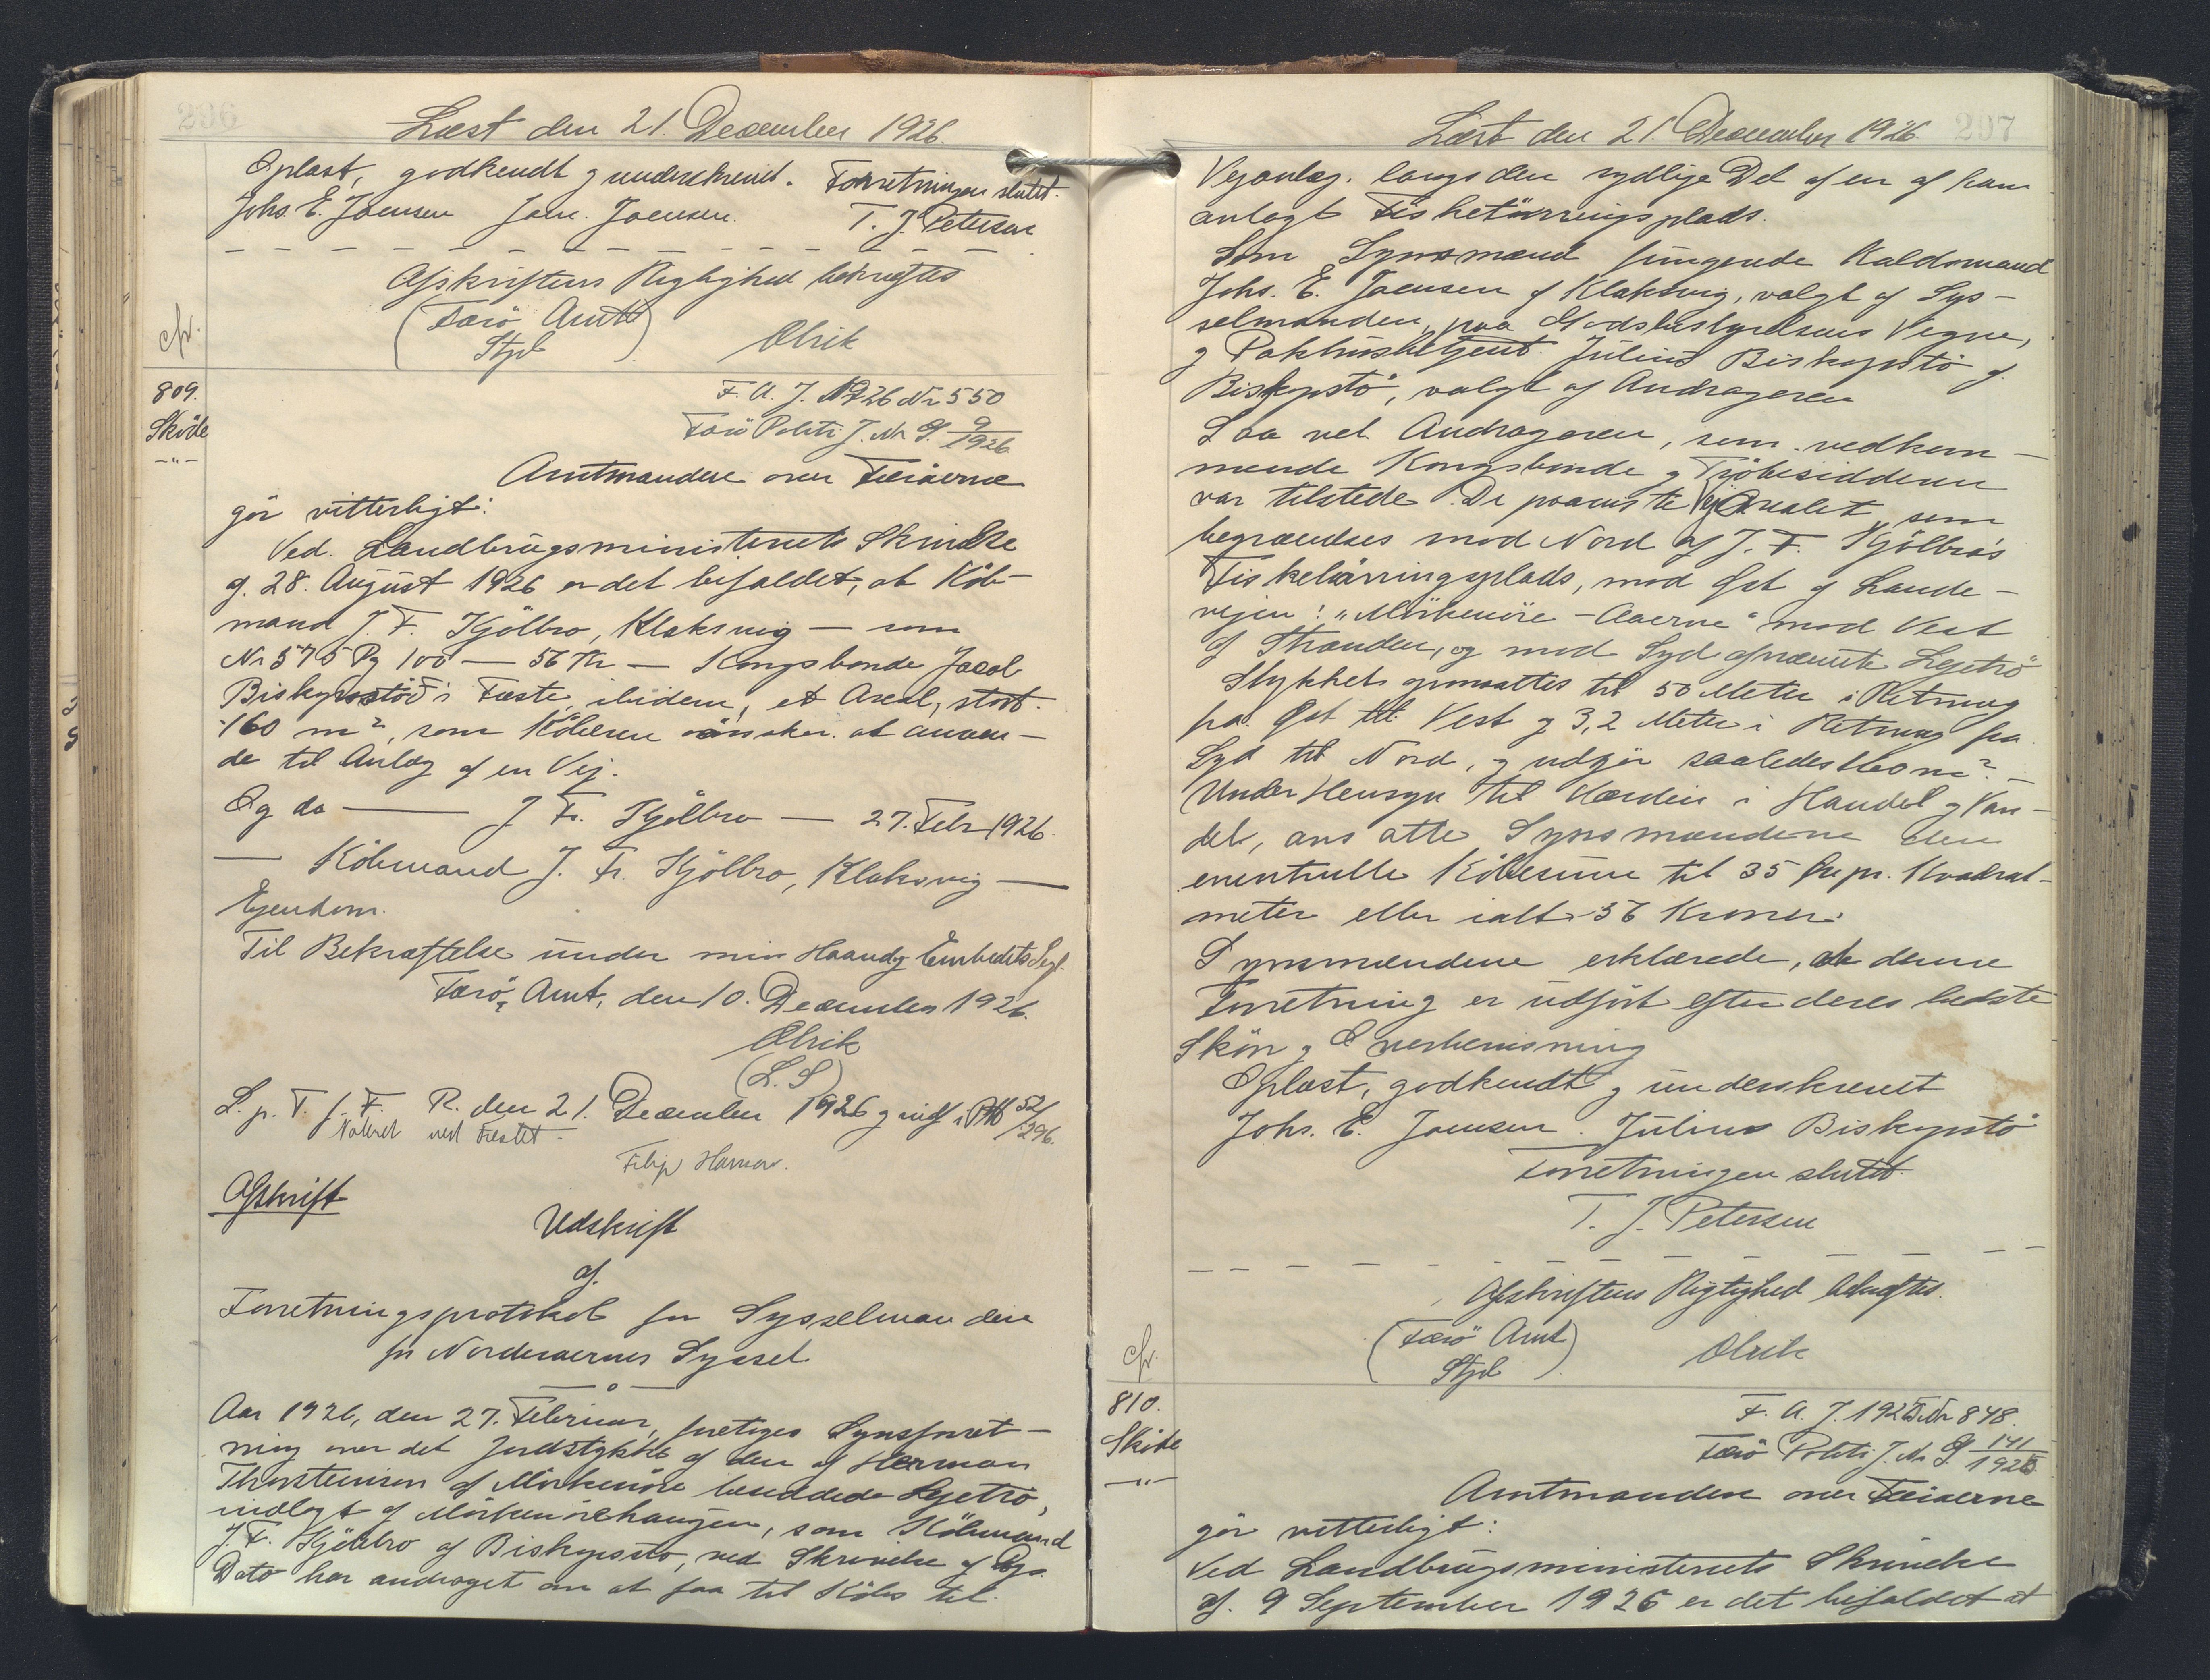 296
Læst den 21. December 1926.
Oplæst, godkendt og underskrevet. Forretningen sluttet.
Johs. E. Joensen Joen. Joensen. T. J. Petersen
Afskriftens Rigtighed bekræftes
(Færö Amt
Stpl) Olrik
cfr.
809.
Sköde
—"—
F. A. J. 1926 Nr 550
Færö Politi J. Nr G. 9/1926
Amtmanden over Færöerne
gör vitterligt:
Ved Landbrugsministeriets Skrivelse
af 28. August 1926 er det bifaldet, at Köb-
mand J. F. Kjölbro, Klaksvig — som
Nr 575 Pg 100 — 56 Kr — Kongsbonde Jacob
Biskopstöd i Fæste, ibidem, et Areal, stort
160 m², som Köberen önsker at anven-
de til Anlæg af en Vej.
Og da — J. Fr. Kjölbro — 27. Febr 1926.
— Köbmand J. Fr. Kjölbro, Klaksvig —
Ejendom.
Til Bekræftelse under min Haand og Embedets Segl.
Færö Amt, den 10. December 1926.
Olrik
(L. S)
L. p. T. f. F. R. den 21. December 1926 og indf. i Ptk 52/296.
Noteret ved Fæstet.
Filip Hamar.
Afskrift
Udskrift
af
Forretningsprotokol for Sysselmanden
for Norderøernes Syssel.
Aar 1926, den 27. Februar, foretoges Synsforret-
ning over det Jordstykke af den af Herman
Thorsteinsen af Mörkenöre besiddede Lejetrö,
indlagt af Mörkenörehaugen, som Köbmand
J. F. Kjölbro af Biskopstö, ved Skrivelse af Dgs.
Dato har andraget om at faa til Köbs til
297
Læst den 21. December 1926
Vejanlæg. langs den sydlige Del af en af ham
anlagt Fisketörringsplads.
Som Synsmænd fungerede Kaldsmand
Johs. E. Joensen af Klaksvig, valgt af Sys-
selmanden, paa Godsbestyrelsens Vegne,
og Pakhusbetjent Julius Biskopstö af
Biskopstö, valgt af Andrageren
Saa vel Andrageren, som vedkom-
mende Kongsbonde og Tröbesidderen
var tilstede. De paaviste Arealet, som
begrændses mod Nord af J. F. Kjölbro's
Fisketörringsplads, mod Öst af Lande-
vejen: "Mörkenöre - Aaerne" mod Vest
af Stranden, og mod Syd afnævnte Lejetrö
Stykket opmaaltes til 50 Meter i Retning
fra Öst til Vest og 3,2 Meter i Retning fra
Syd til Nord, og udgör saaledes 160 m². —
Under Hensyn til Værdien i Handel og Van-
del, ansatte Synsmændene den
eventuelle Köbesum til 35 Öre pr. Kvadrat-
meter eller ialt 56 Kroner.
Synsmændene erklærede, at denne
Forretning er udfört efter deres bedste
Skön og Overbevisning
Oplæst, godkendt og underskrevet
Johs. E. Joensen. Julius Biskopstö
Forretningen sluttet.
T. J. Petersen
Afskriftens Rigtighed bekræftes.
(Færö Amt
Stpl) Olrik
cfr.
810.
Sköde
—"—
F. A. J. 1925 Nr 848.
Færö Politi J. Nr G 141/1925.
Amtmanden over Færöerne
gör vitterligt:
Ved Landbrugsministeriets Skrivelse
af 9 September 1926 er det bifaldet at